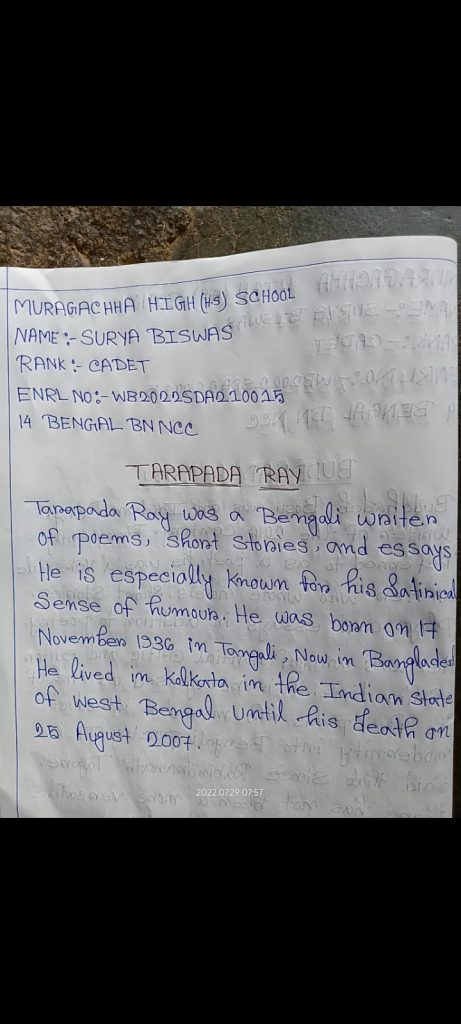 MURAGACHHA HIGH (H.S) SCHOOL
NAME:- SURYA BISWAS
RANK:- CADET
ENRL NO:- WB2022SDA210015
14 BENGAL BN NCC
TARAPADA RAY
Tarapada Ray was a Bengali writer
of poems, short stories, and essays
He is especially known for his Satirical
Sense of humour. He was born on 17
November 1936 in Tangali, Now in Bangladesh
He lived in Kolkata in the Indian State
of west Bengal until his death on
25 August 2007.
2022.07.29 07:57